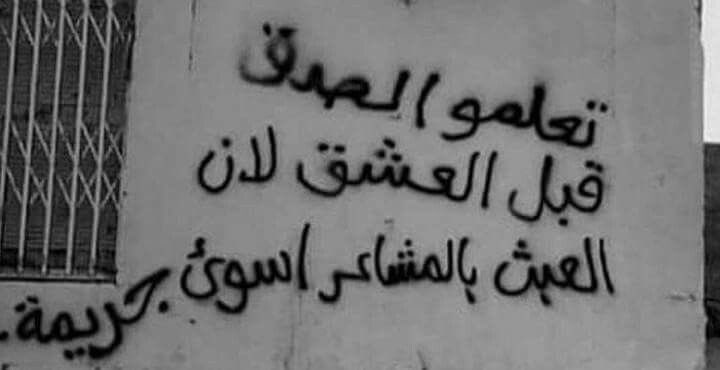 تعلمو الصدق
قبل العشق لان
العبث بالمشاعر اسوئ جريمة.